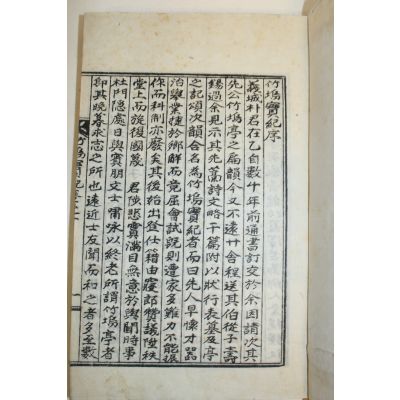 竹塢寶紀序
義城朴君在乙自數十年前通書訂交於余因請次其
先公竹塢亭之扁韻今又不遠卄舍程送其伯從子壽
錫過余見示其先藁詩文略干篇附以狀行表墓及亭
之記頌次韻合名爲竹塢寶紀者而曰先人早懷才器
治擧業捷於鄕解而竟屈會試旣則遭家多難力不能振
作而科制亦廢矣其後始出登仕籍由寢郞贊議陞秩
堂上而旋復國變 君陟悲實滿目無意於與聞時事
杜門隱處日與賓朋文士嘯咏以終老所謂竹塢亭者
卽其晩暮永志之所也遠近士友聞而和之者多至數
竹塢寶紀卷之
一